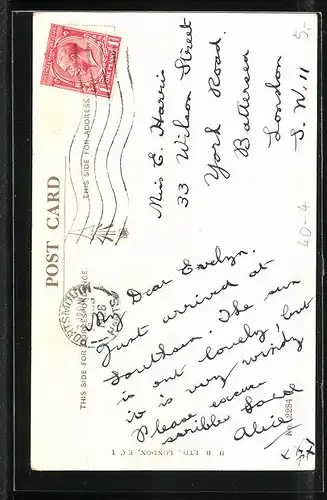 POST CARD
THIS SIDE FOR CORRESPONDENCE.
THIS SIDE FOR ADDRESS
ONE PENNY
PORTSMOUTH
Dear Evelyn.
Just arrived at
Southsea. The sun
is out lovely, but
it is very windy
Please excuse
scribble Love
Alice
x x x
Miss E. Harris
33 Wilson Street
York Road.
Battersea
London
S. W. 11
5,-
40-4
No. 12284
H B LTD., LONDON, E C 1